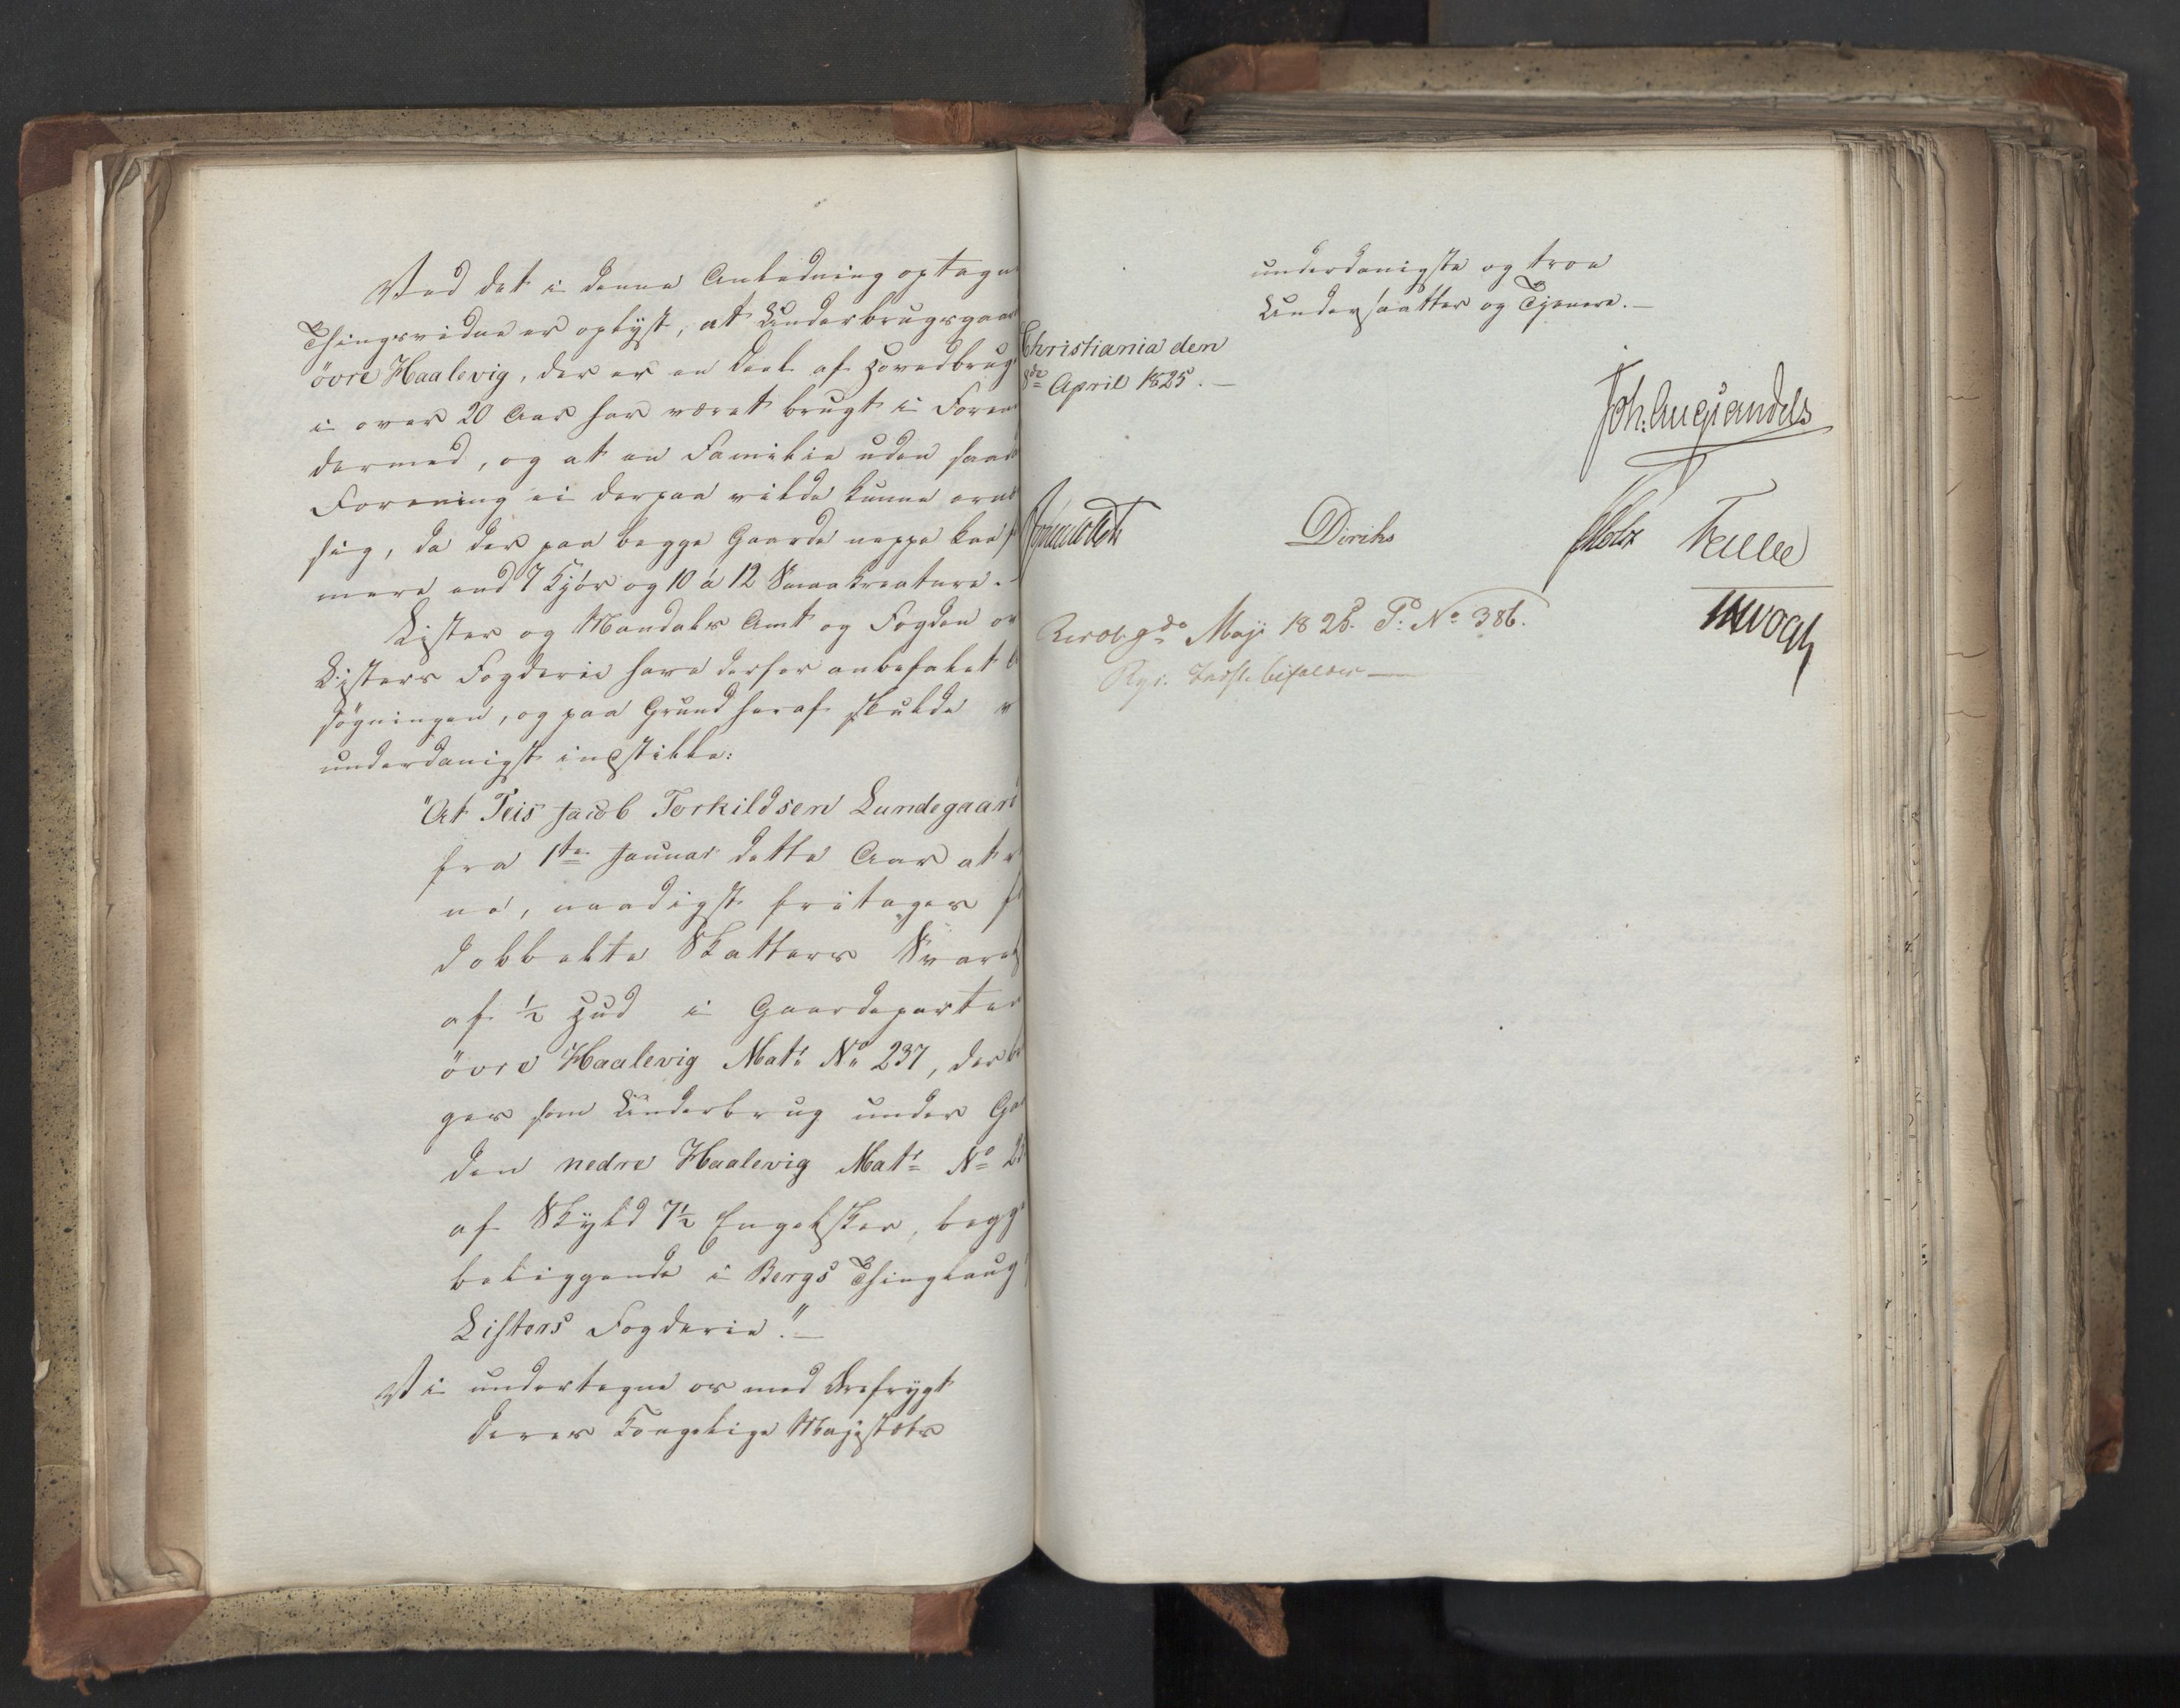 Ved det i denne Anledning optagne
Thingsvidne er oplyst, at Underbrugsgaar
övre Haalevig, der er en Deel af Hovedbrug
i over 20 Aar har været brugt i Foren
dermed, og at en Familie uden saad
Forening ei derpaa vilde kunne ernæ
sig, da der paa begge Gaarde neppe kan
mere end 7 Kjör og 10 à 12 Smaakreature.
Lister og Mandals Amt og Fogden ov
Listers Fogderie have derfor anbefalet
søgningen, og paa Grund heraf skulde v
underdanigst indstille:
"At Teis Jacob Torkildsen Lundegaard
fra 1ste Januar dette Aar at r
ne, naadigst fritages f
dobbelte Skatters Svarel
af ½ Hud i Gaardeparten
övre Haalevig Matr. No 237, der br
ges som Underbrug under Ga
den nedre Haalevig Matr. No 23
af Skyld 7½ Engelsker, begge
beliggende i Bergs Thinglaug
Listers Fogderie."—
Vi undertegne os med Ærefrygt
Deres Kongelige Majestæts
underdanigste og troe
Undersaatter og Tjenere.—
Christiania den
8de April 1825.—
Joh. Aug Sandels
Diriks Motz Treschow
Resol. 9de Maji 1825. P. No 386.
Rgs. Indst. bifaldes —